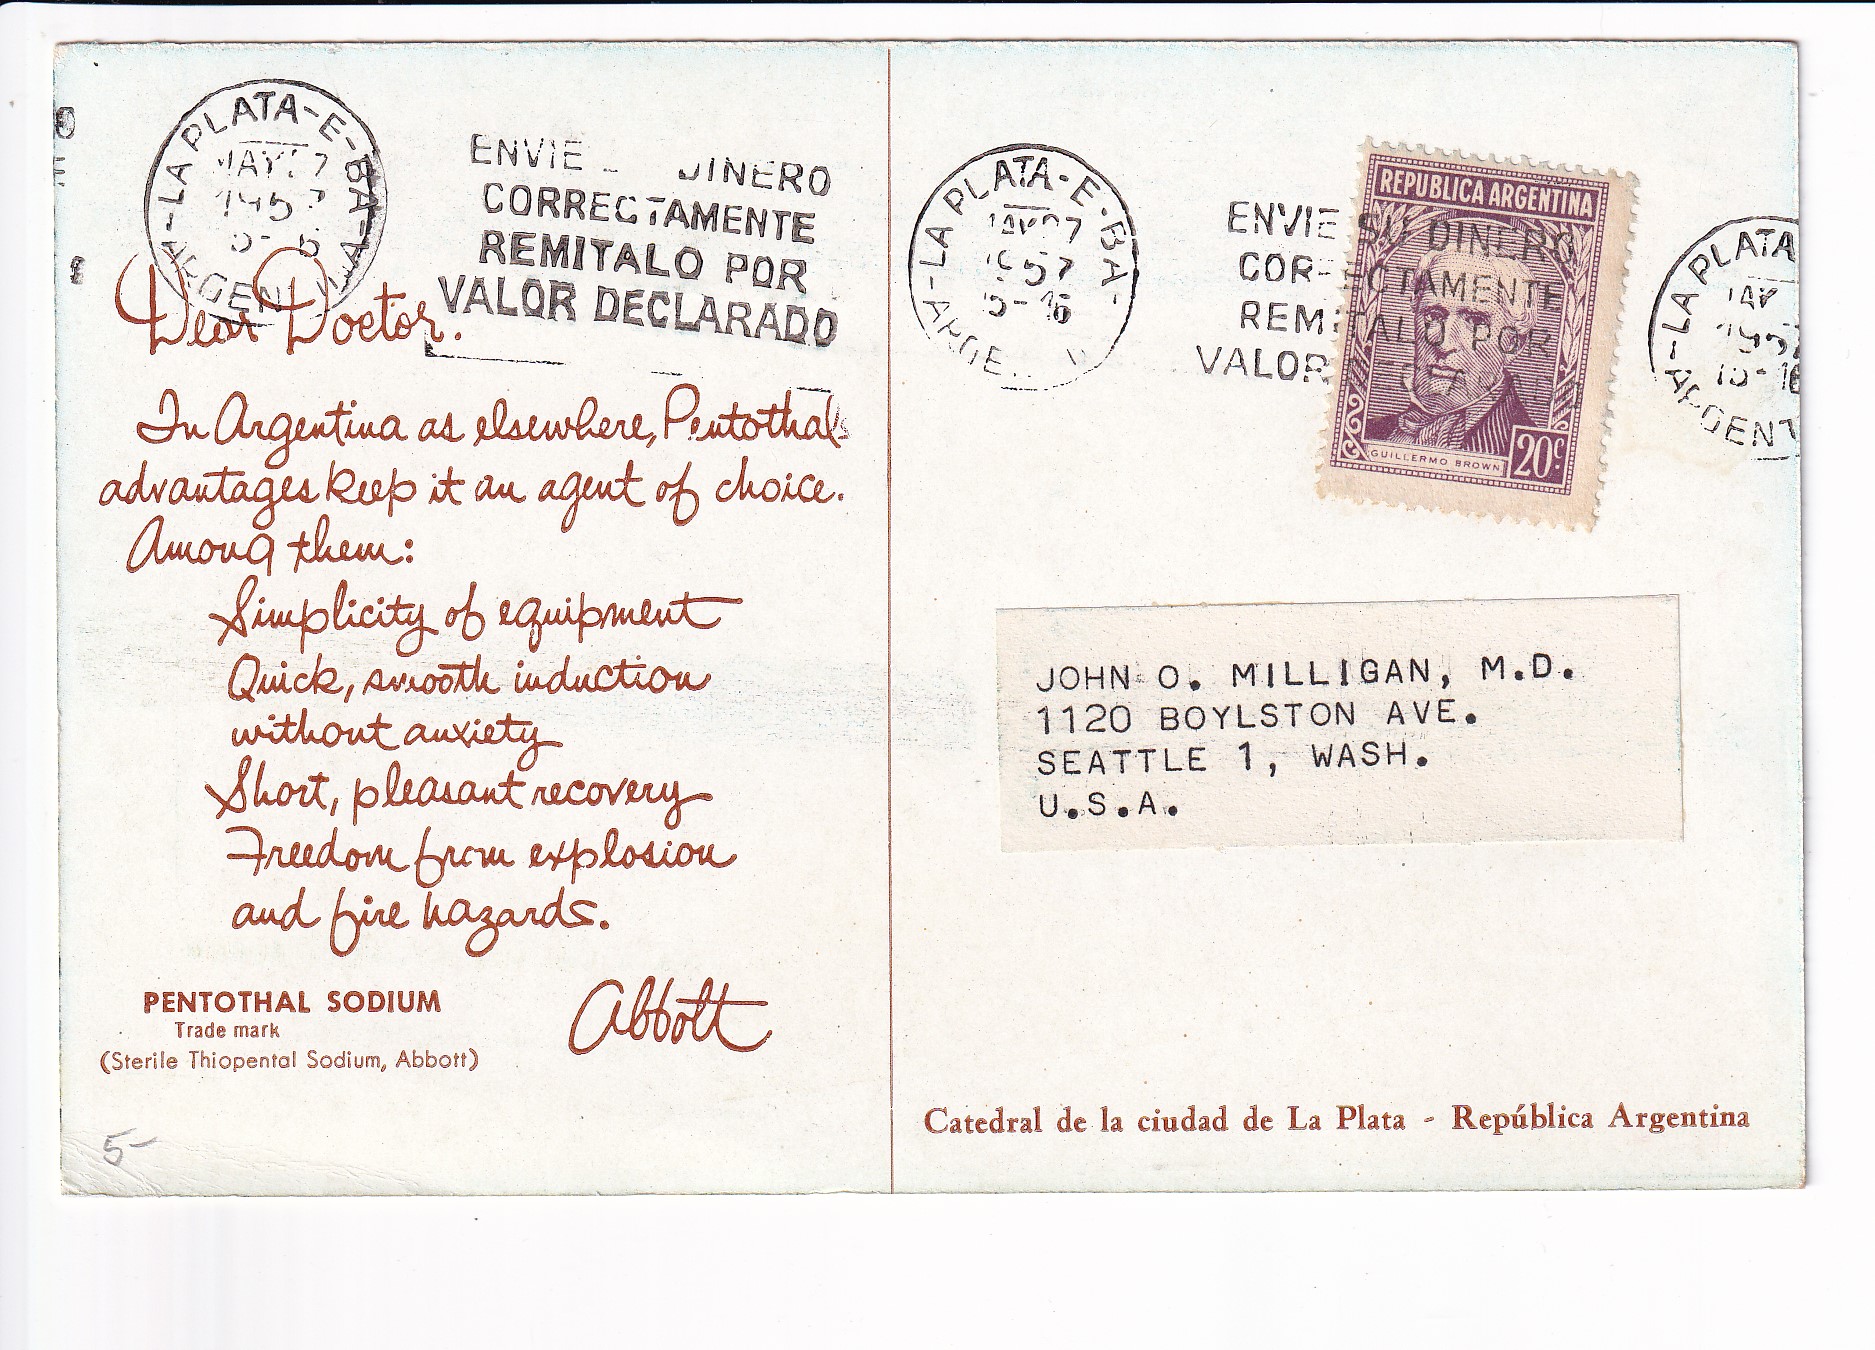 LA PLATA-E-BA-
1957
ENVIE DINERO
CORRECTAMENTE
REMITALO POR
VALOR DECLARADO
Dear Doctor.
In Argentina as elsewhere, Pentothal's
advantages keep it an agent of choice.
Among them:
Simplicity of equipment
Quick, smooth induction
without anxiety
Short, pleasant recovery
Freedom from explosion
and fire hazards.
Abbott
PENTOTHAL SODIUM
Trade mark
(Sterile Thiopental Sodium, Abbott)
5-
-LA PLATA-E-BA-
1957
15-16
ENVIE SU DINERO
CORRECTAMENTE
REMITALO POR
VALOR
REPUBLICA ARGENTINA
GUILLERMO BROWN
20c.
-LA PLATA
1957
15-16
ARGENT
JOHN O. MILLIGAN, M.D.
1120 BOYLSTON AVE.
SEATTLE 1, WASH.
U.S.A.
Catedral de la ciudad de La Plata - República Argentina